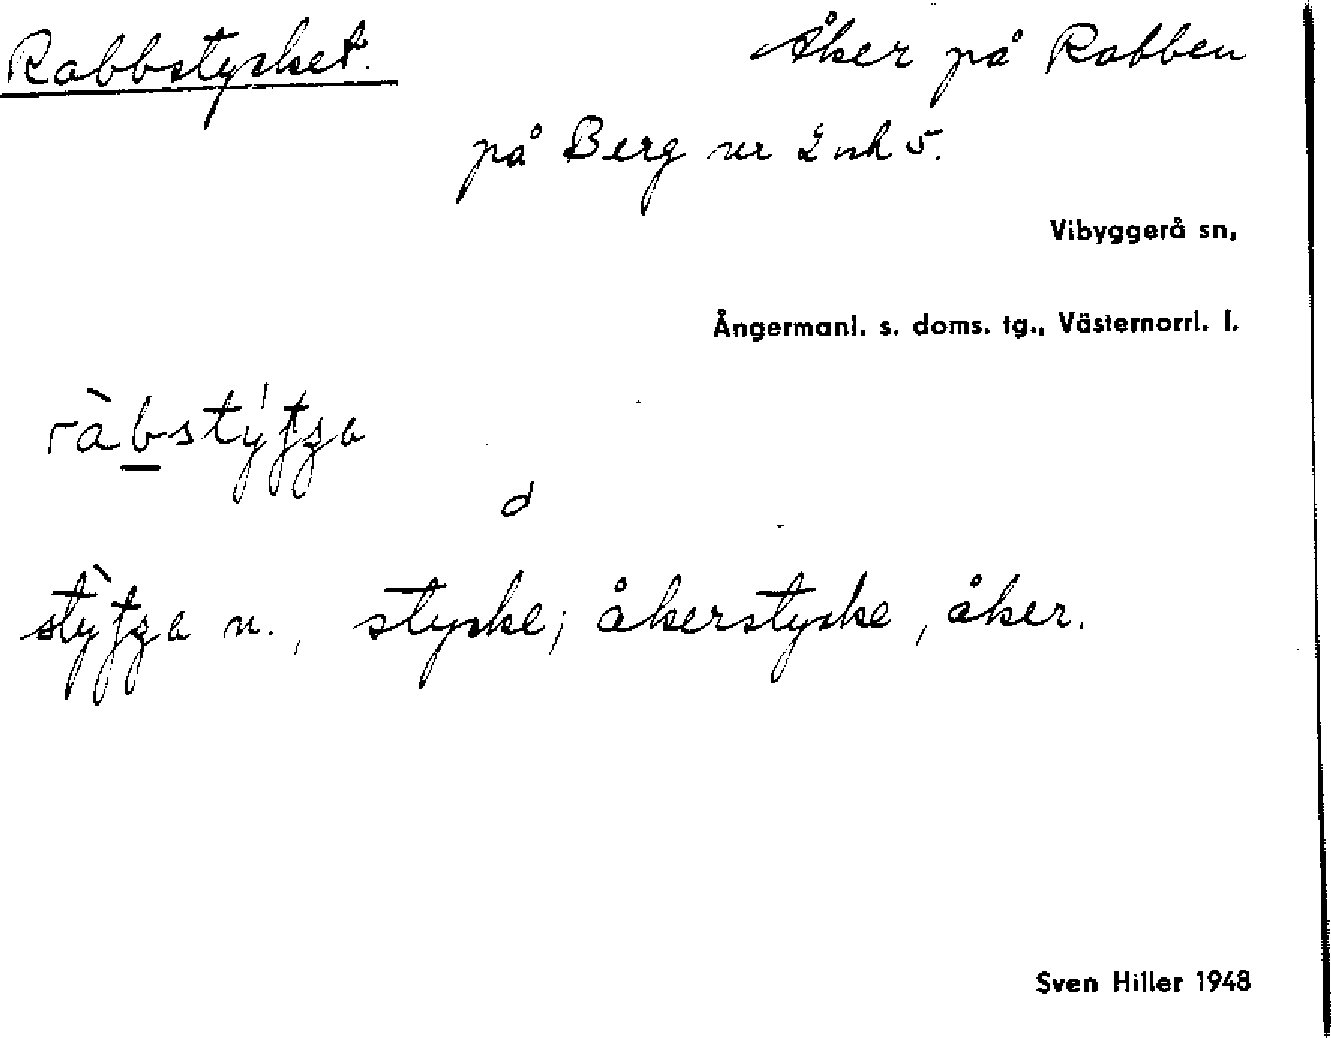 Rabbstycket. Åker på Rabben
på Berg nr 2 och 5.
Vibyggerå sn,
Ångermanl. s. doms. tg., Västernorrl. l.
d
n., stycke; åkerstycke, åker.
Sven Hiller 1948